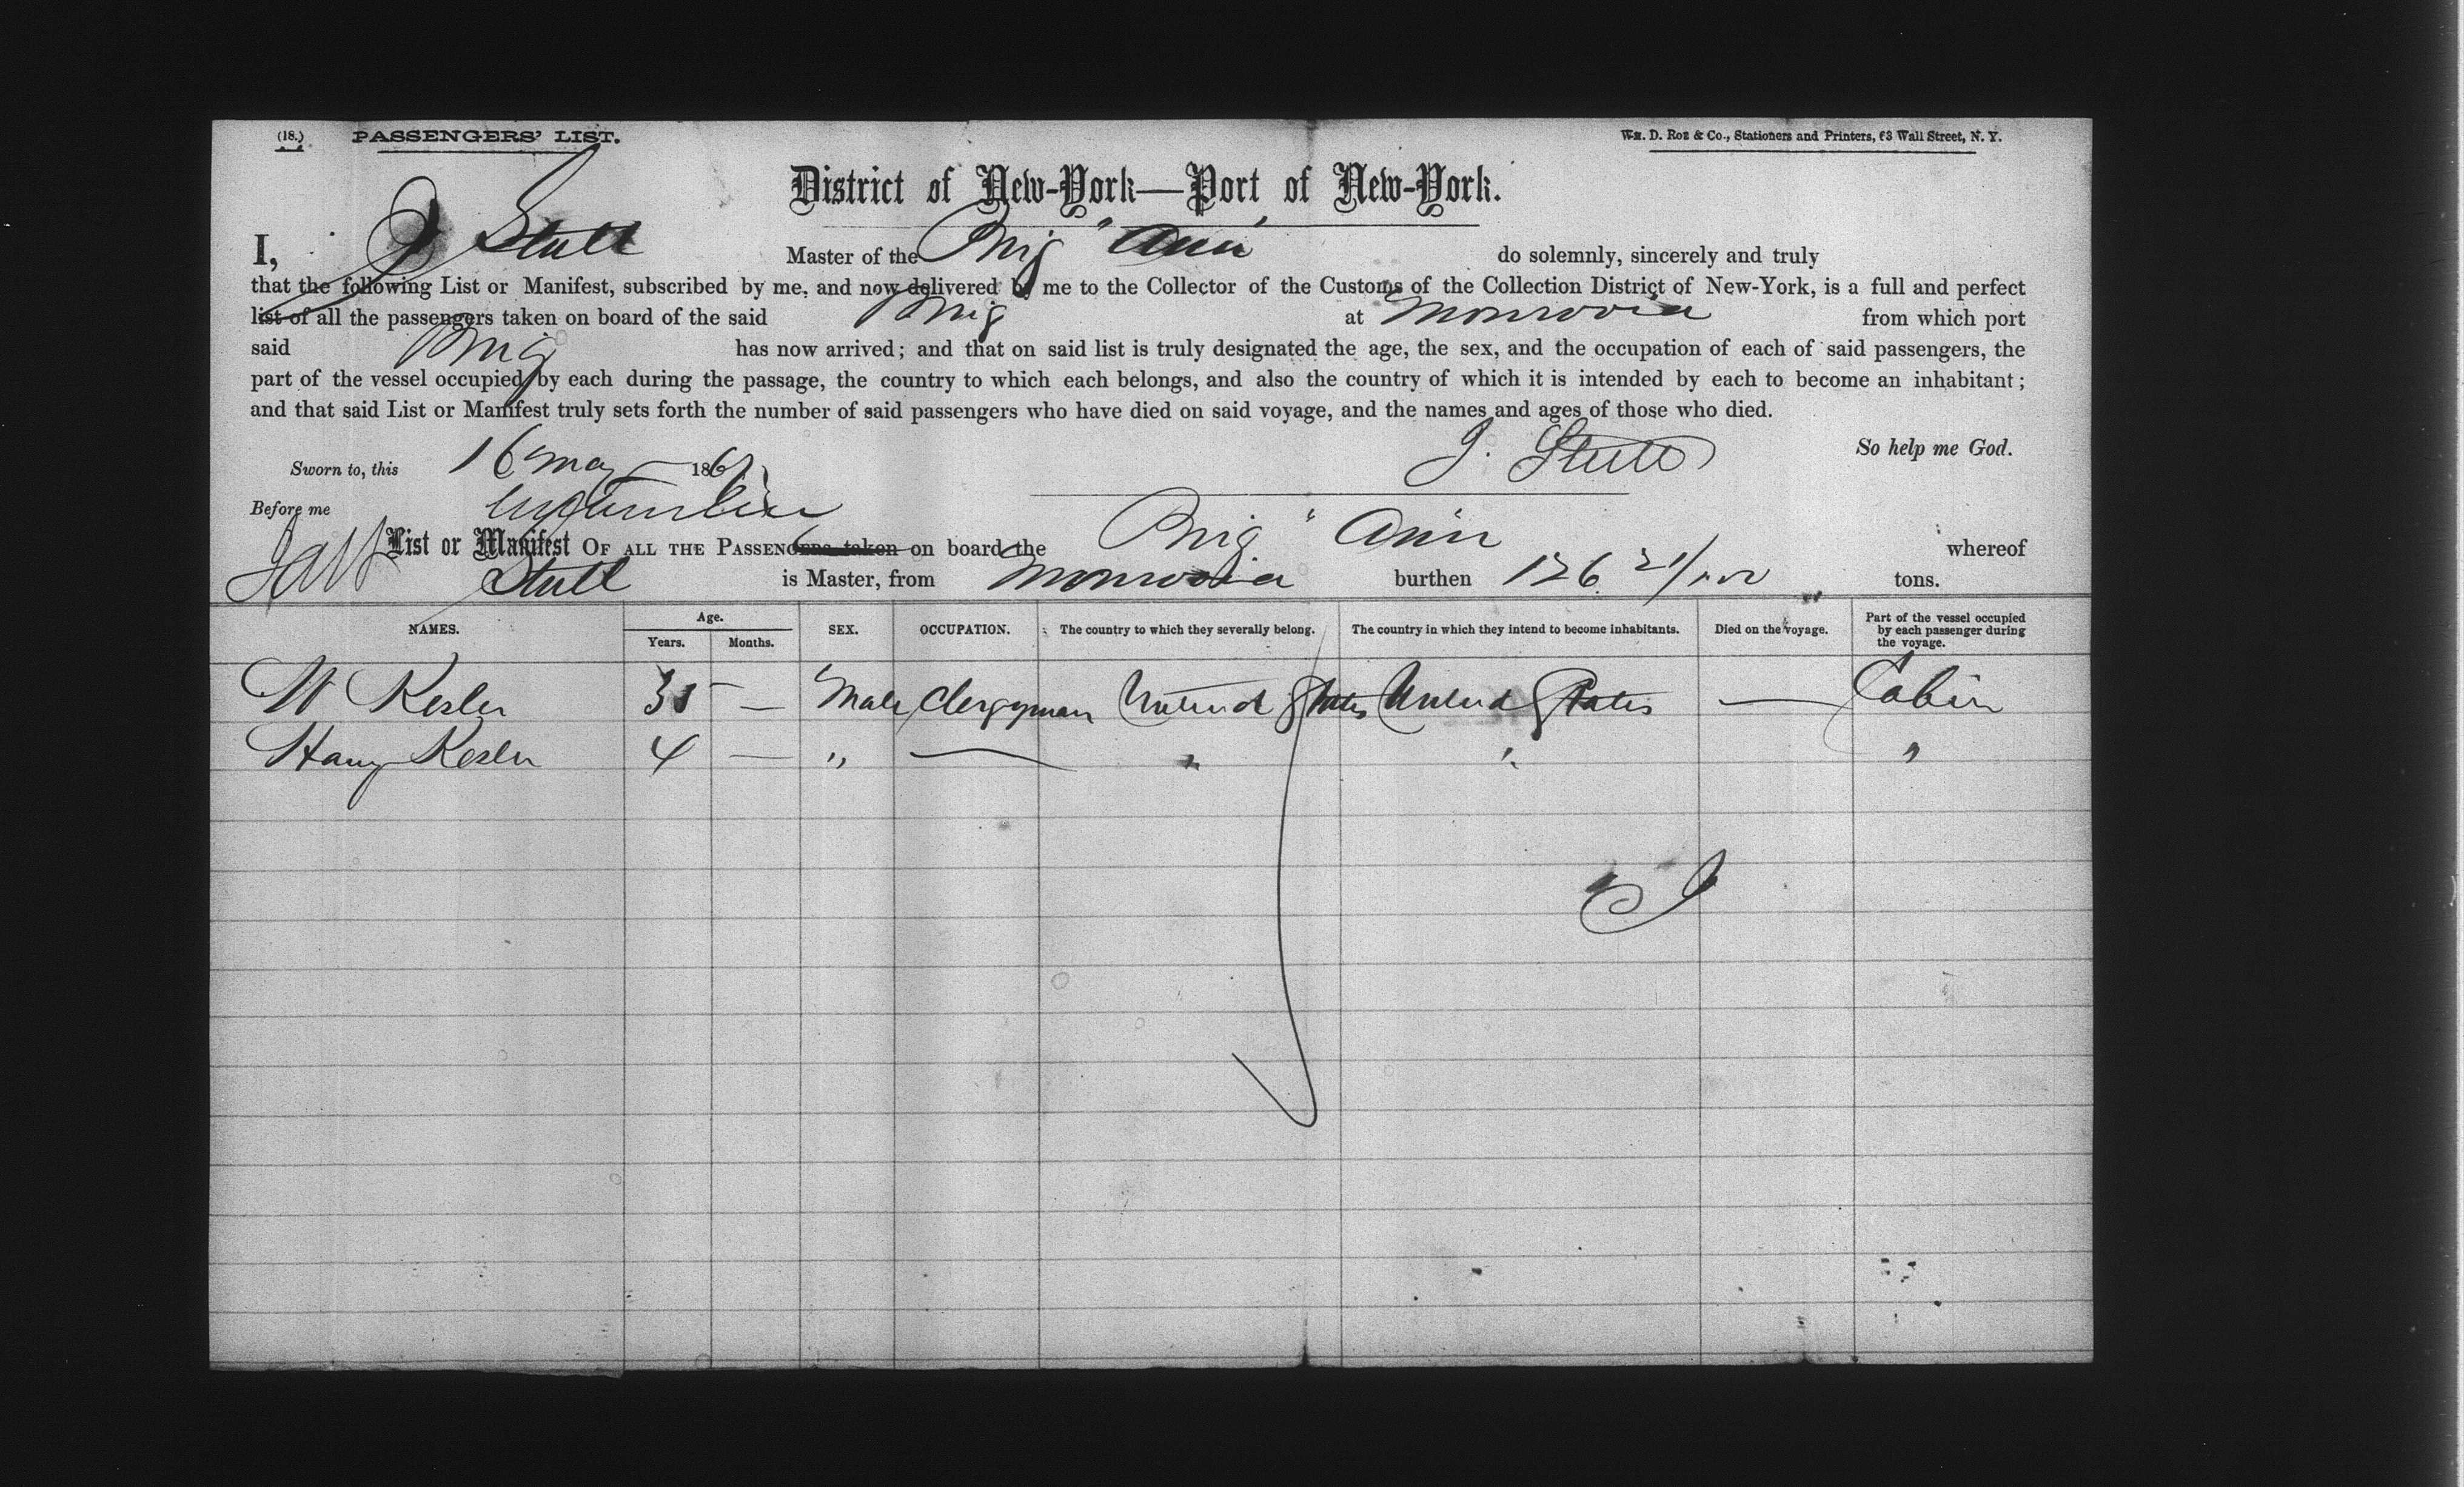 (18.) PASSENGERS' LIST. Wm. D. Roe & Co., Stationers and Printers, 63 Wall Street, N. Y.
District of New-York—Port of New-York.
I, J Stull Master of the Brig "Ann" do solemnly, sincerely and truly
that the following List or Manifest, subscribed by me, and now delivered by me to the Collector of the Customs of the Collection District of New-York, is a full and perfect
list of all the passengers taken on board of the said Brig at Monrovia from which port
said Brig has now arrived; and that on said list is truly designated the age, the sex, and the occupation of each of said passengers, the
part of the vessel occupied by each during the passage, the country to which each belongs, and also the country of which it is intended by each to become an inhabitant;
and that said List or Manifest truly sets forth the number of said passengers who have died on said voyage, and the names and ages of those who died.
So help me God.
Sworn to, this 16 May 186 J. Stull
Before me
List or Manifest OF ALL THE PASSENGERS taken on board the Brig "Ann whereof
Stull is Master, from Monrovia burthen 126 21/100 tons.
NAMES. Age. Years. Months. SEX. OCCUPATION. The country to which they severally belong. The country in which they intend to become inhabitants. Died on the voyage. Part of the vessel occupied by each passenger during the voyage.
W Kesler 35 — Male Clergyman United States United States — Cabin
Harry Kesler 4 — " — " " "